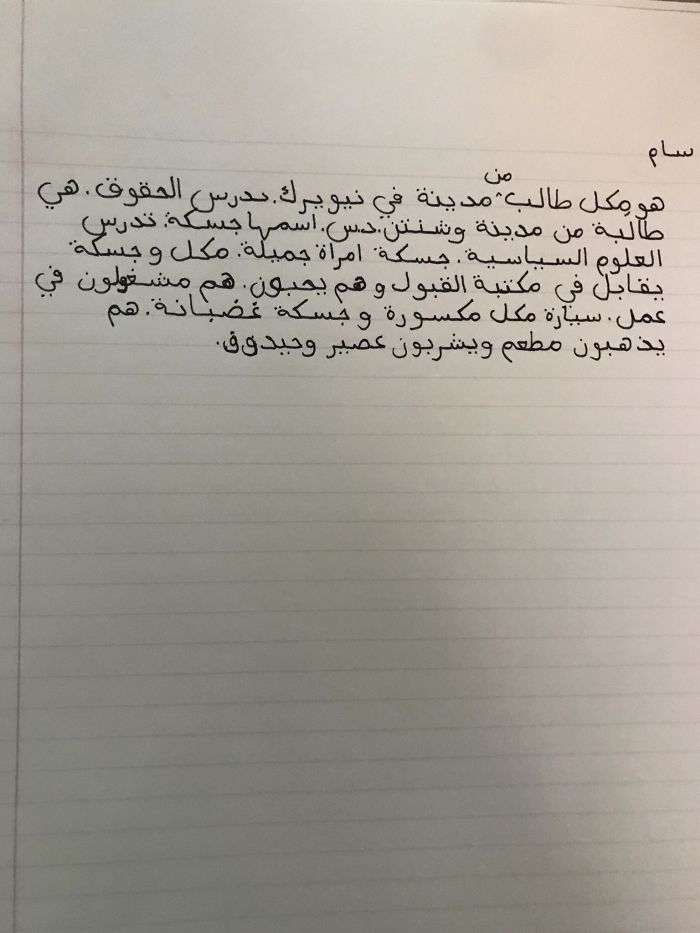 سام
هو مِكل طالب من مدينة في نيويرك. يدرس الحقوق. هي
طالبة من مدينة وشنتن.د.س. اسمها جسكة. تدرس
العلوم السياسية. جسكة امراة جميلة. مكل و جسكة
يقابل في مكتبة القبول و هم يحبون. هم مشغولون في
عمل. سيارة مكل مكسورة و جسكة غضبانة. هم
يذهبون مطعم ويشربون عصير